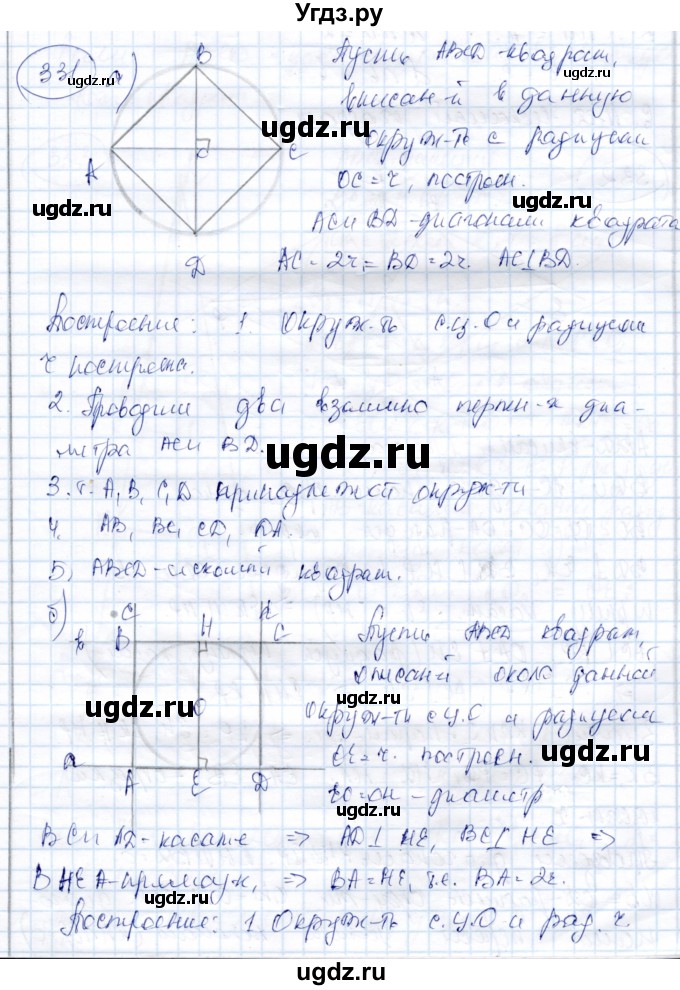 Угдз.ру
331 а)
Пусть ABCD-квадрат,
B
вписан-й в данную
окруж-ть с радиусом
A
O
C
OC = r, построен.
AC и BD-диагонали квадрата
D
AC = 2r = BD = 2r. AC⊥BD.
Построение: 1. Окруж-ть с.ц.О и радиусом
r построена.
2. Проводим два взаимно перпен-х диа-
метра AC и BD.
3. т. A, B, C, D принадлежат окруж-ти
4. AB, BC, CD, DA.
5, ABCD-искомый квадрат.
б)
в B H. C
Пусть ABCD квадрат,
описан-й около данной
окруж-ть с ц.О и радиусом
r. построен.
a
A E D
EO=OH - диаметр
BC и AD-касате => AD⊥HE, BC⊥HE =>
BHEA-прямоуг, => BA=HE, т.е. BA=2r.
Построение: 1. Окруж-ть с.ц.О и рад. r.
ugdz.ru
ugdz.ru
ugdz.ru
ugdz.ru
ugdz.ru
ugdz.ru
ugdz.ru
ugdz.ru
ugdz.ru
ugdz.ru
ugdz.ru
ugdz.ru
ugdz.ru
ugdz.ru